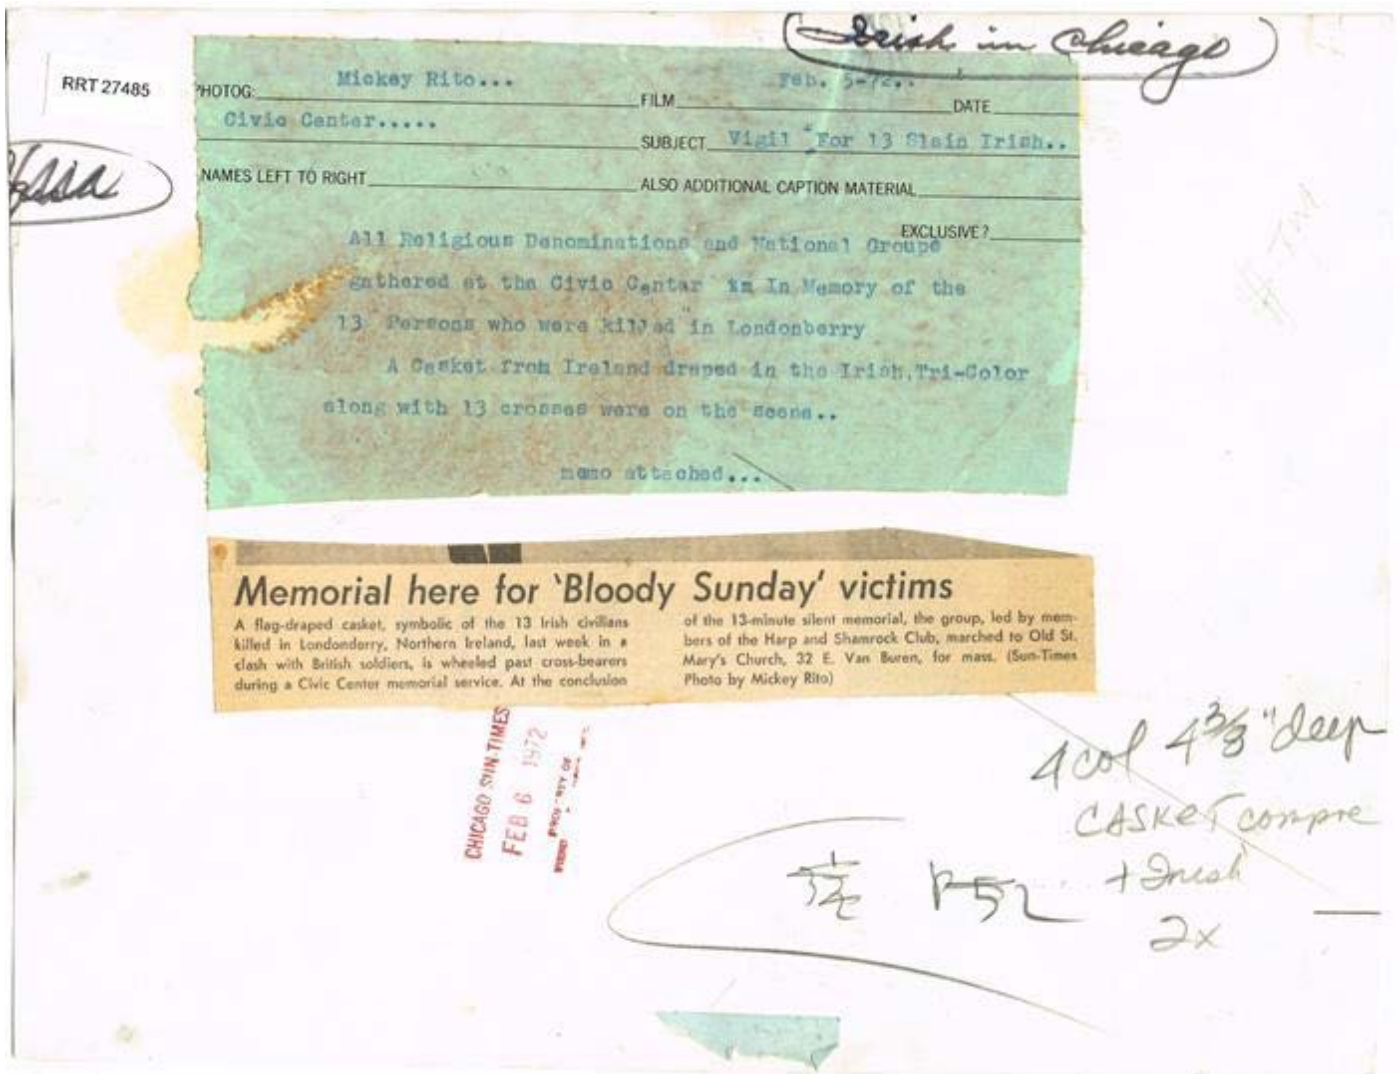 Irish in Chicago
RRT 27485
PHOTOG: Mickey Rito... FILM Feb. 5-72.. DATE
Civic Center.....
SUBJECT Vigil "For 13 Slain Irish..
NAMES LEFT TO RIGHT ALSO ADDITIONAL CAPTION MATERIAL
EXCLUSIVE?
All Religious Denominations and National Groups
gathered at the Civic Center In Memory of the
13 Persons who were killed in Londonberry
A Casket from Ireland draped in the Irish,Tri-Color
along with 13 crosses were on the scene..
memo attached...
Memorial here for 'Bloody Sunday' victims
A flag-draped casket, symbolic of the 13 Irish civilians
killed in Londonderry, Northern Ireland, last week in a
clash with British soldiers, is wheeled past cross-bearers
during a Civic Center memorial service. At the conclusion
of the 13-minute silent memorial, the group, led by mem-
bers of the Harp and Shamrock Club, marched to Old St.
Mary's Church, 32 E. Van Buren, for mass. (Sun-Times
Photo by Mickey Rito)
CHICAGO SUN-TIMES
FEB 6 1972
PROPERTY OF
4 col 4 3/8" deep
CASKET
+ Irish
2x